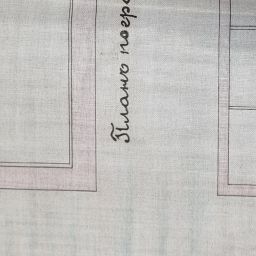 Планъ погр